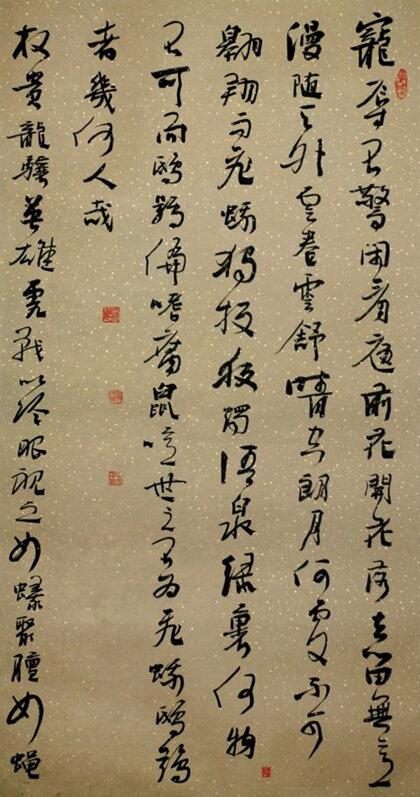 寵辱不驚閑看庭前花開花落去留無意
漫随天外雲卷雲舒晴空朗月何處不可
翱翔而飛蛾獨投夜燭清泉綠何物
不可而鴟鴞偏嗜腐鼠噫世之不為飛蛾鴟鴞
者幾何人哉
权貴龍驤英雄虎戰以冷眼視之如聚膻如蠅